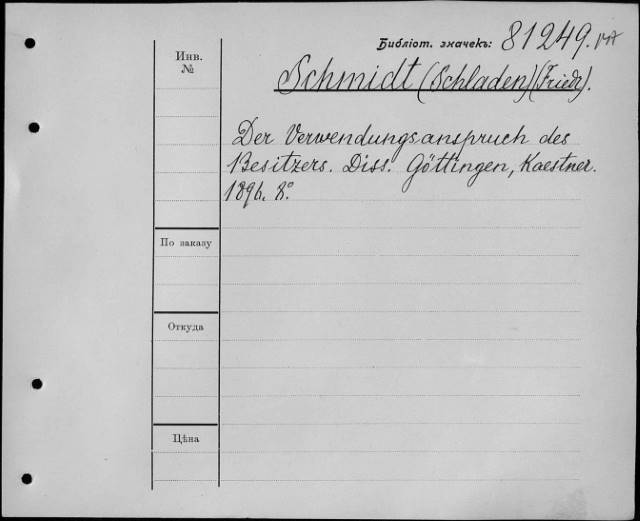 Библіот. значекъ: 81249.
Инв.
№
Schmidt (Schladen) (Friedr).
Der Verwendungsanspruch des
Besitzers. Diss. Göttingen, Kaestner.
1896. 8°.
По заказу
Откуда
Цѣна